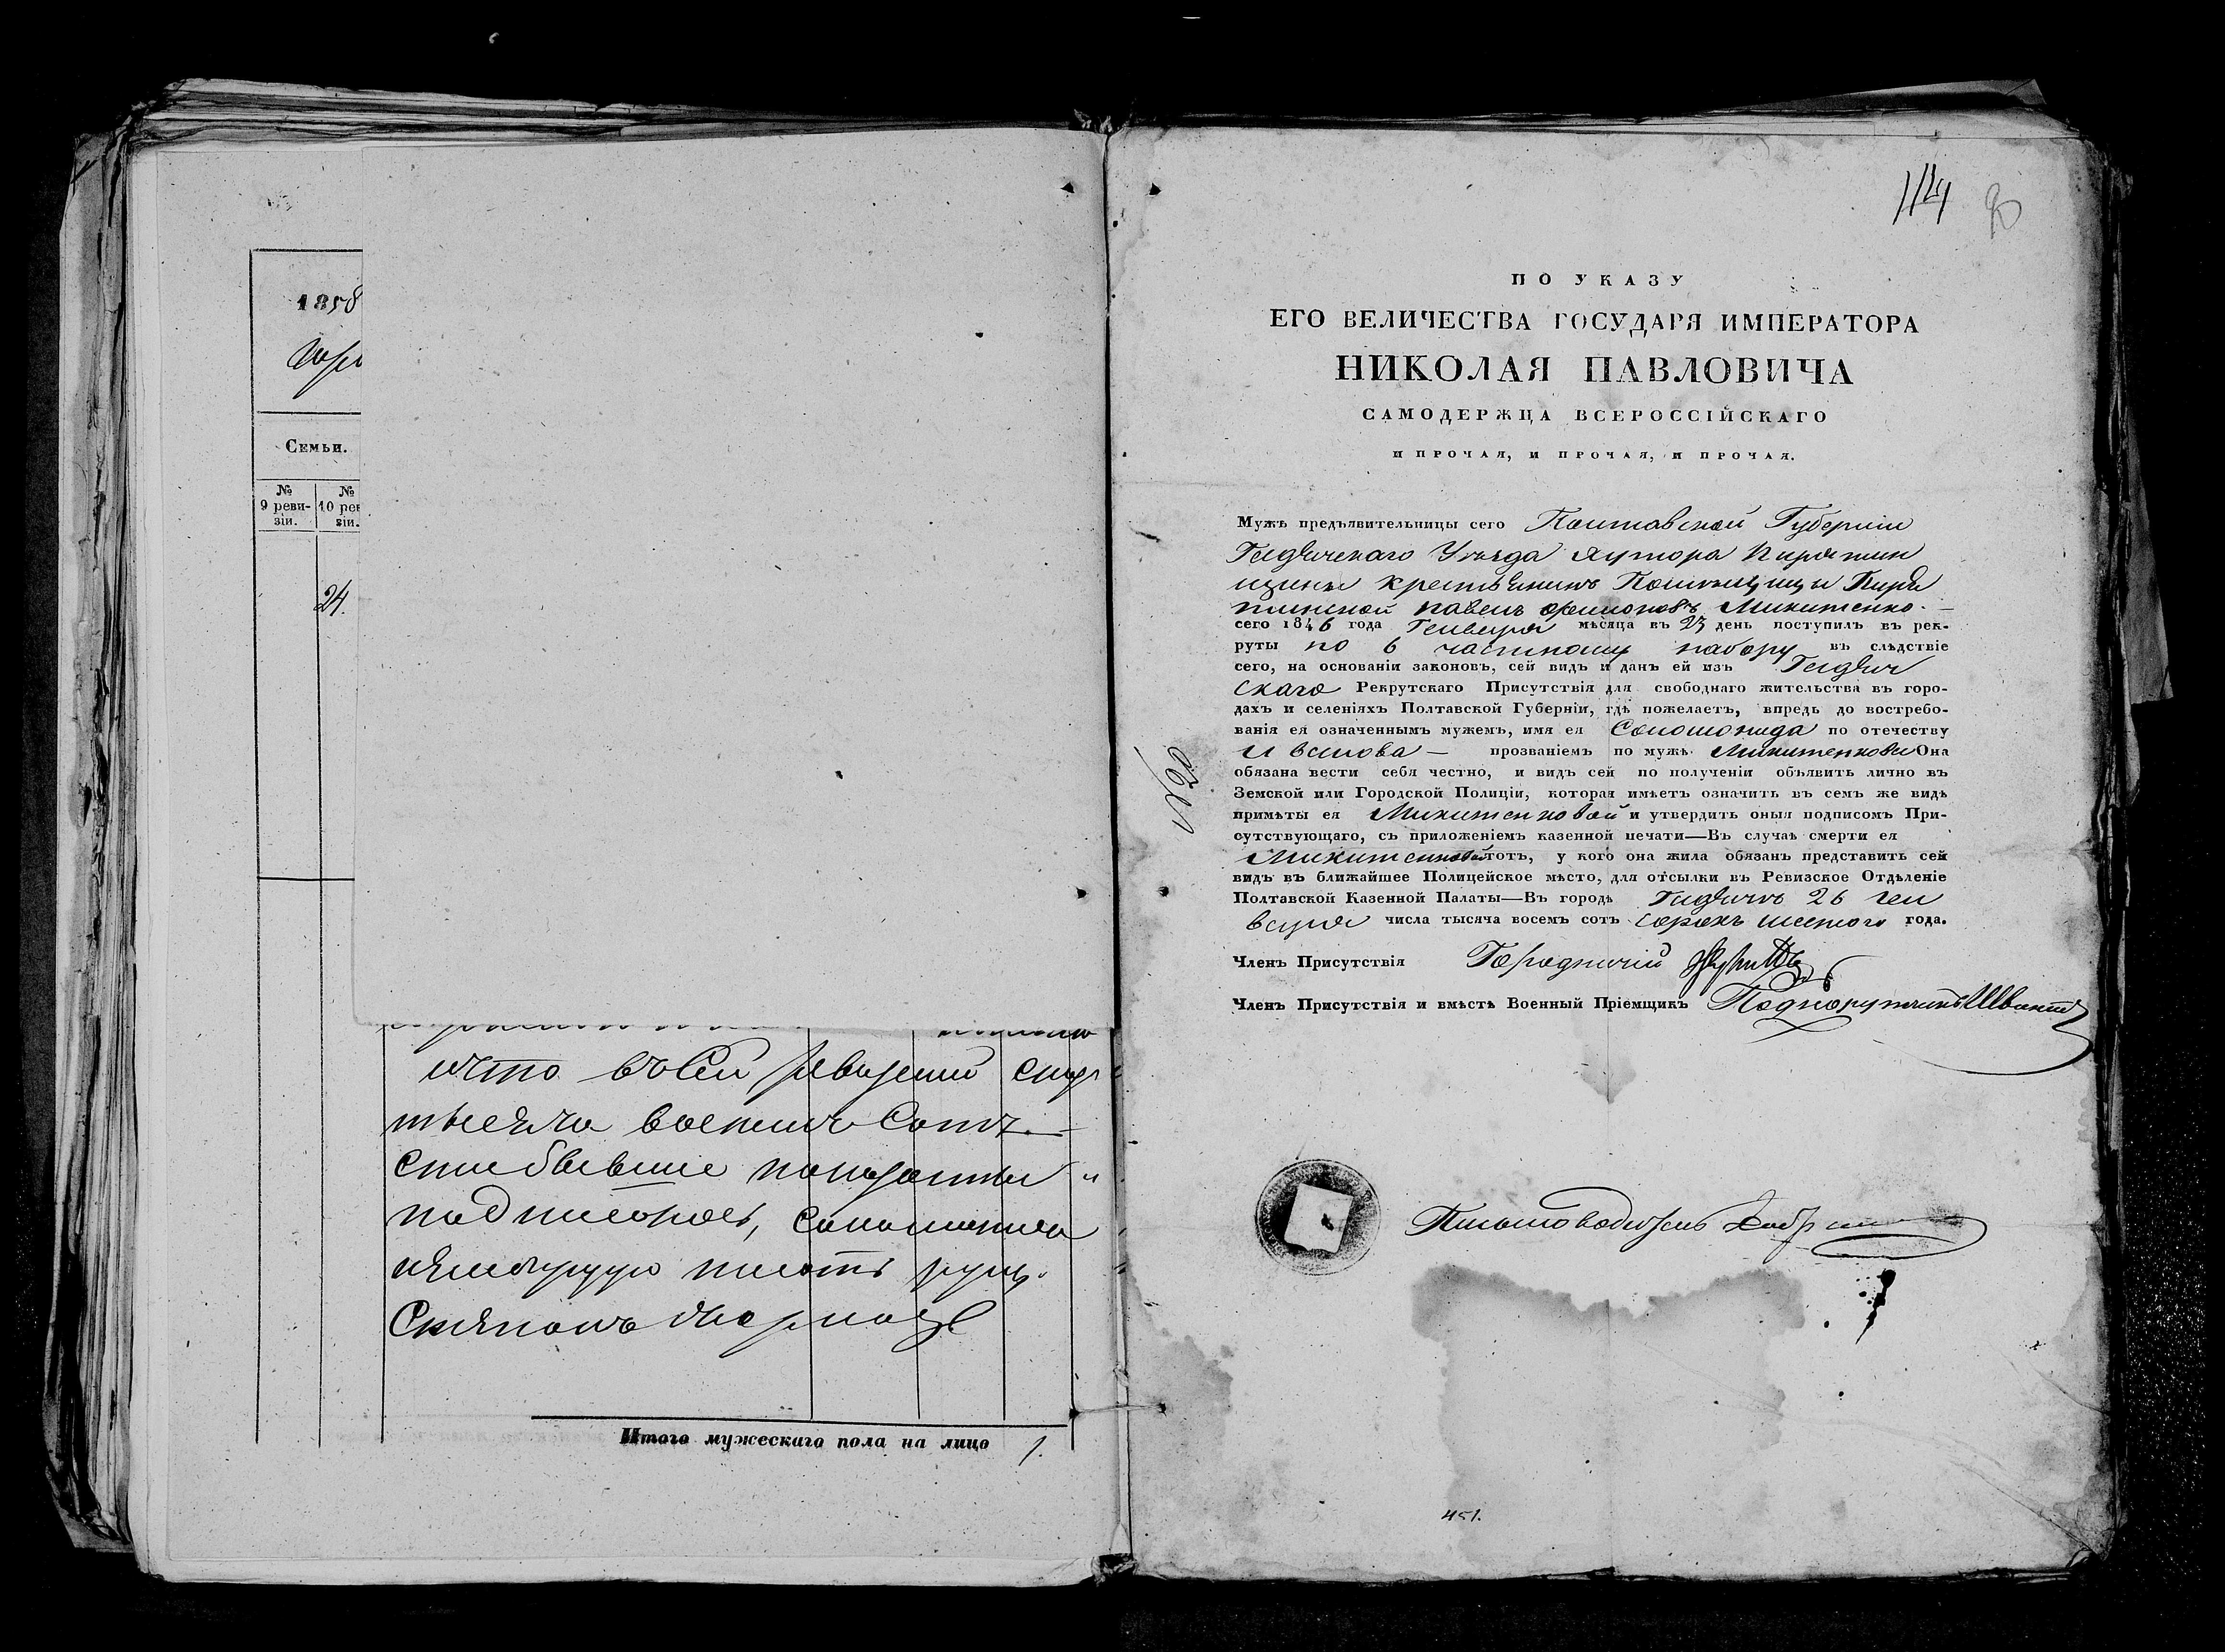 1858
Семьи.
№ №
9 реви- 10 рев
зіи. зіи.
24.
что въ сей ревизіи
тысяча восемь сотъ
подписокъ,
Итого мужескаго пола на лицо 1.
114
ПО УКАЗУ
ЕГО ВЕЛИЧЕСТВА ГОСУДАРЯ ИМПЕРАТОРА
НИКОЛАЯ ПАВЛОВИЧА
САМОДЕРЖЦА ВСЕРОССІЙСКАГО
И ПРОЧАЯ, И ПРОЧАЯ, И ПРОЧАЯ.
Мужъ предъявительницы сего Полтавской Губерніи
Гадячскаго Уѣзда хутора Пирятин
щины крестьянинъ Помѣщицы Пиря
тинской Павелъ Микитенко. —
сего 1846 года Генваря мѣсяца въ 23 день поступилъ въ рек-
руты по 6 частному набору въ слѣдствіе
сего, на основаніи законовъ, сей видъ и данъ ей изъ Гадяч
скаго Рекрутскаго Присутствія для свободнаго жительства въ горо-
дахъ и селеніяхъ Полтавской Губерніи, гдѣ пожелаетъ, впредь до востребо-
ванія ея означеннымъ мужемъ, имя ея Соломонида по отечеству
Иванова — прозваніемъ по мужѣ Микитенкова Она
обязана вести себя честно, и видъ сей по полученіи объявить лично въ
Земской или Городской Полиціи, которая имѣетъ означить въ семъ же видѣ
примѣты ея Микитенковой и утвердить оныя подписомъ При-
сутствующаго, съ приложеніемъ казенной печати—Въ случаѣ смерти ея
Микитенковой тотъ, у кого она жила обязанъ представить сей
видъ въ ближайшее Полицейское мѣсто, для отсылки въ Ревизское Отдѣленіе
Полтавской Казенной Палаты—Въ городѣ Гадячъ 26 ген
варя числа тысяча восемъ сотъ сорокъ шестого года.
Членъ Присутствія Городничій
Членъ Присутствія и вмѣстѣ Военный Пріемщикъ Подпоручикъ
Письмоводитель
451.